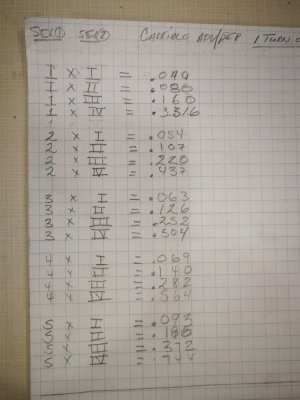 SEL① SEL② CARRIAGE ADV/REV 1 TURN
1 × I = .040
1 × II = .080
1 × III = .160
1 × IV = .3316
2 × I = .054
2 × II = .107
2 × III = .220
2 × IV = .437
3 × I = .063
3 × II = .126
3 × III = .252
3 × IV = .504
4 × I = .069
4 × II = .140
4 × III = .282
4 × IV = .564
5 × I = .093
5 × II = .186
5 × III = .372
5 × IV = .744